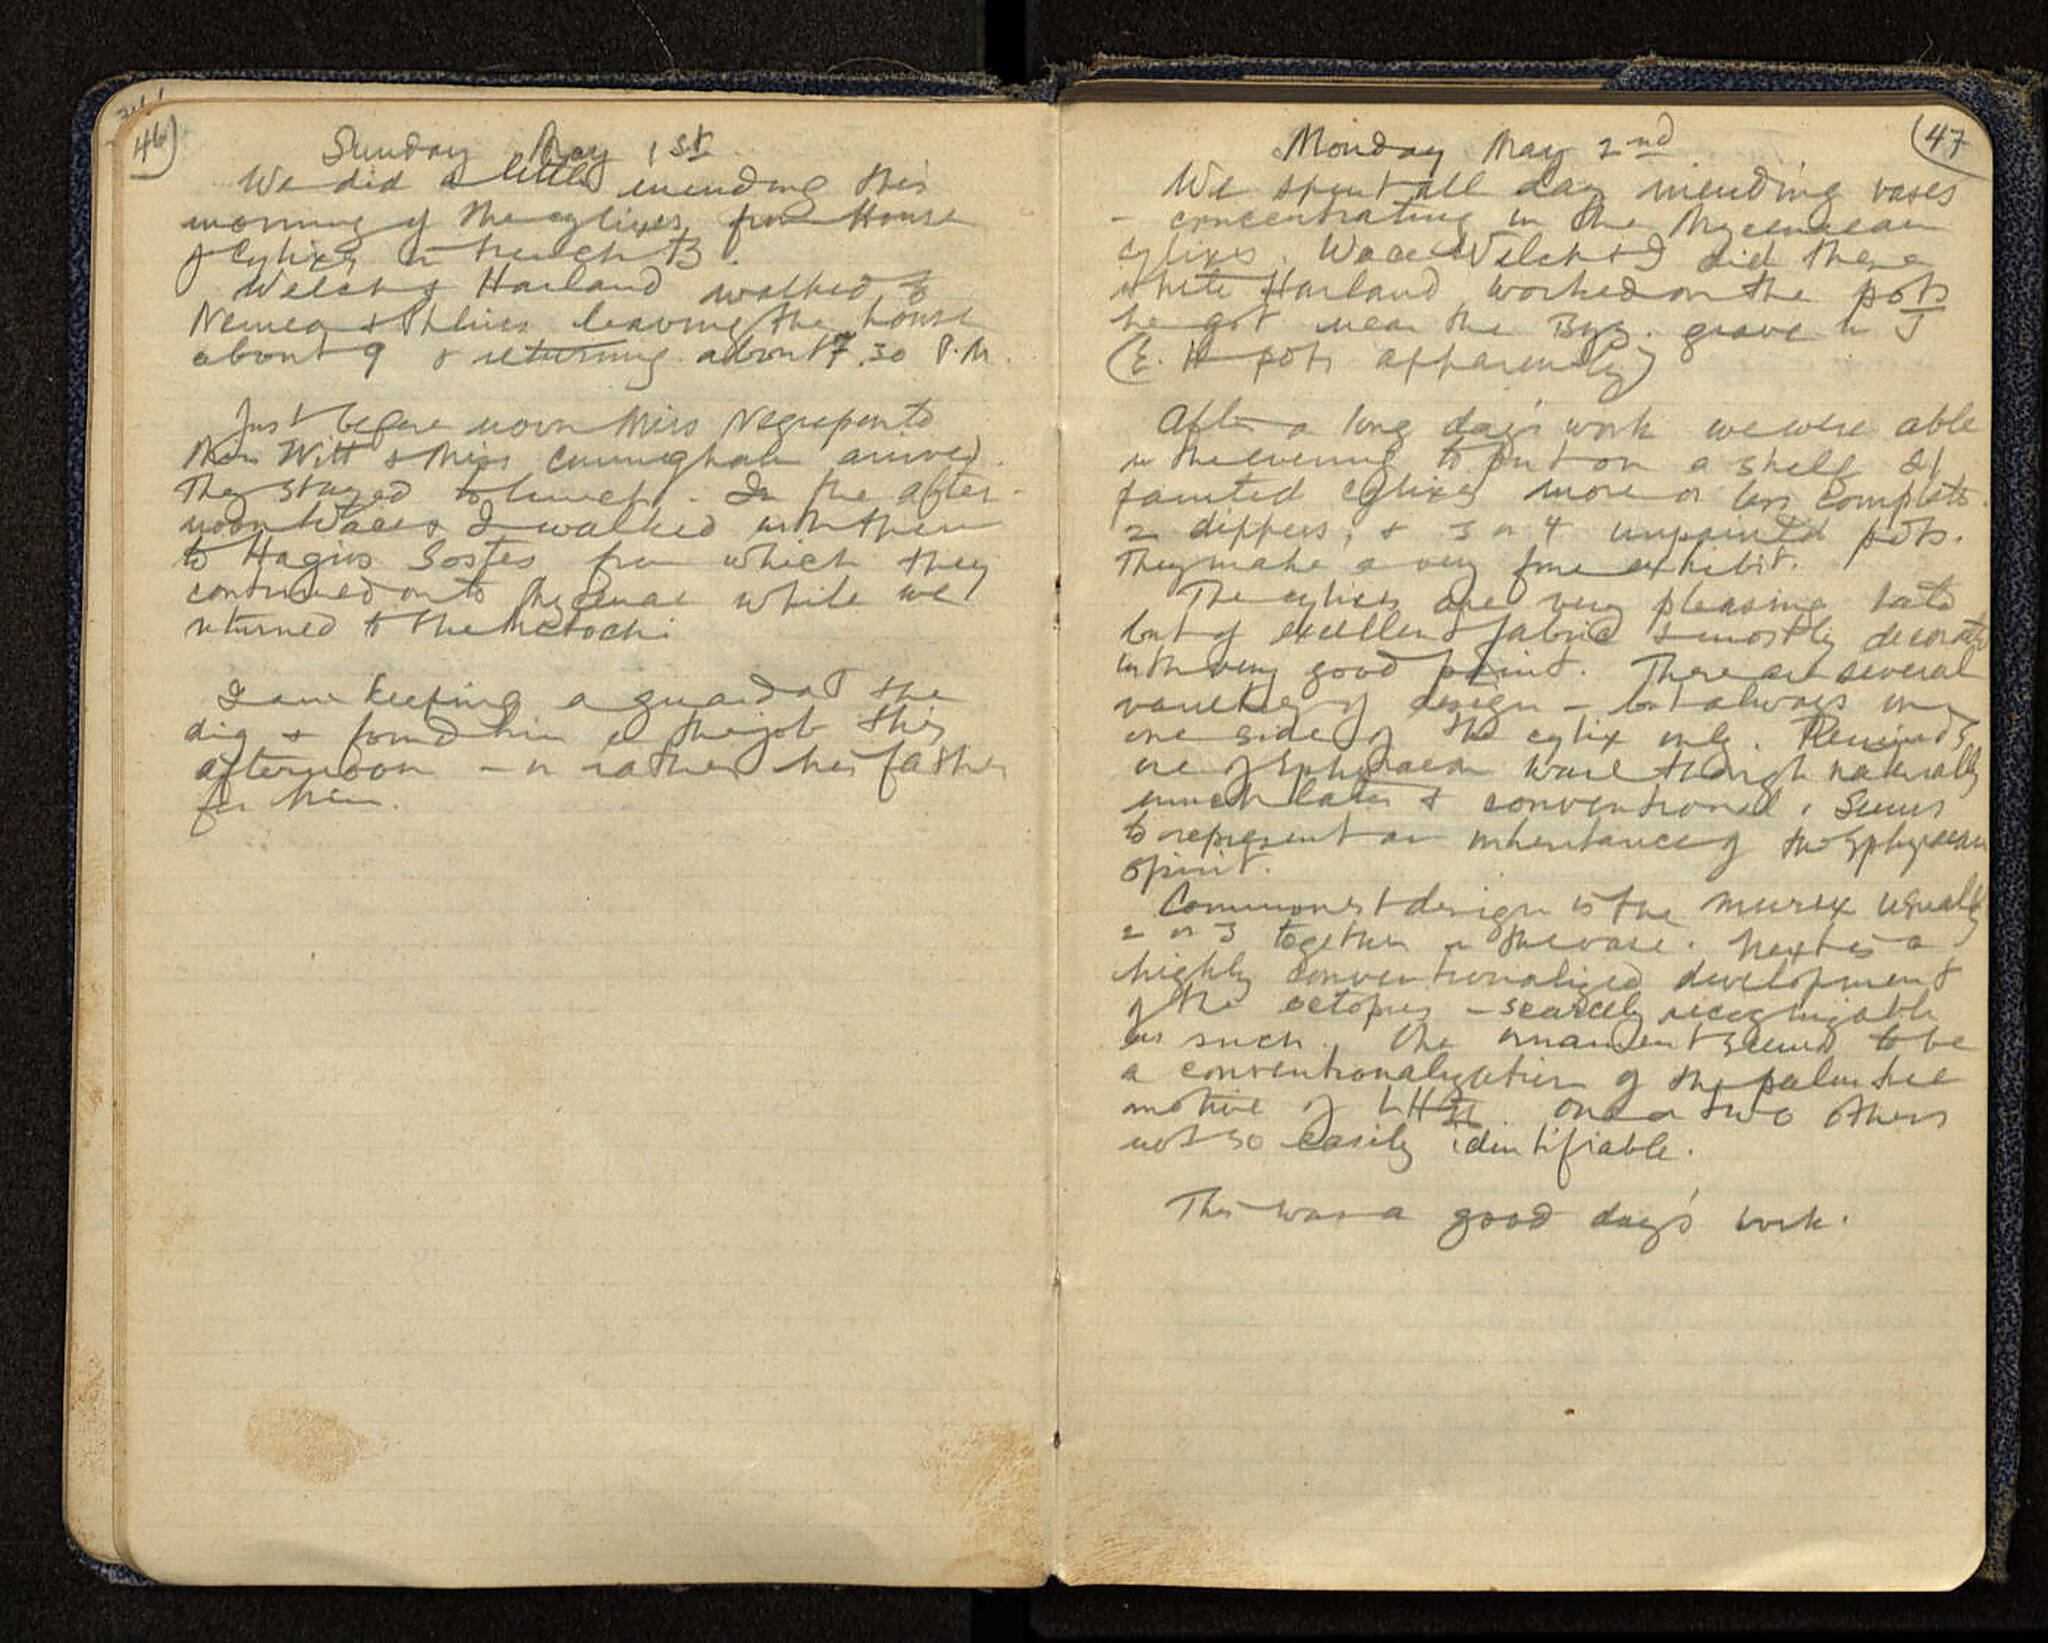 46
Sunday May 1st
We did a little mending this
morning of the cylixes from House
of Cylixes in trench B.
Welsh & Harland walked to
Nemea & Phlius leaving the house
about 9 & returning about 7.30 P.M.
Just before noon Miss Negreponte
Miss Witt & Miss Cunningham arrived.
They stayed to lunch. In the after-
noon Wace & I walked with them
to Hagios Sostes from which they
continued on to Mycenae while we
returned to the Metochi
I am keeping a guard at the
dig & found him on the job this
afternoon - or rather his father
for him.
47
Monday May 2nd
We spent all day mending vases
- concentrating on the Mycenaean
cylixes. Wace Welsh & I did these
while Harland worked on the pots
he got near the Byz. grave in J
(E. H pots apparently)
After a long day's work we were able
in the evening to put on a shelf 21
painted cylixes more or less complete.
2 dippers, & 3 or 4 unpainted pots.
They make a very fine exhibit.
The cylixes are very pleasing late
but of excellent fabric & mostly decorated
with very good paint. There are several
varieties of design - but always on
one side of the cylix only. Reminds
one of Ephyraean ware though naturally
much later & conventional, Seems
to represent an inheritance of the Ephyraean
spirit.
Commonest design is the murex usually
2 or 3 together on the vase. Next is a
highly conventionalized development
of the octopus - scarcely recognizable
as such. One ornament seems to be
a conventionalization of the palm tree
motive of LH II. One or two others
not so easily identifiable.
This was a good day's work.